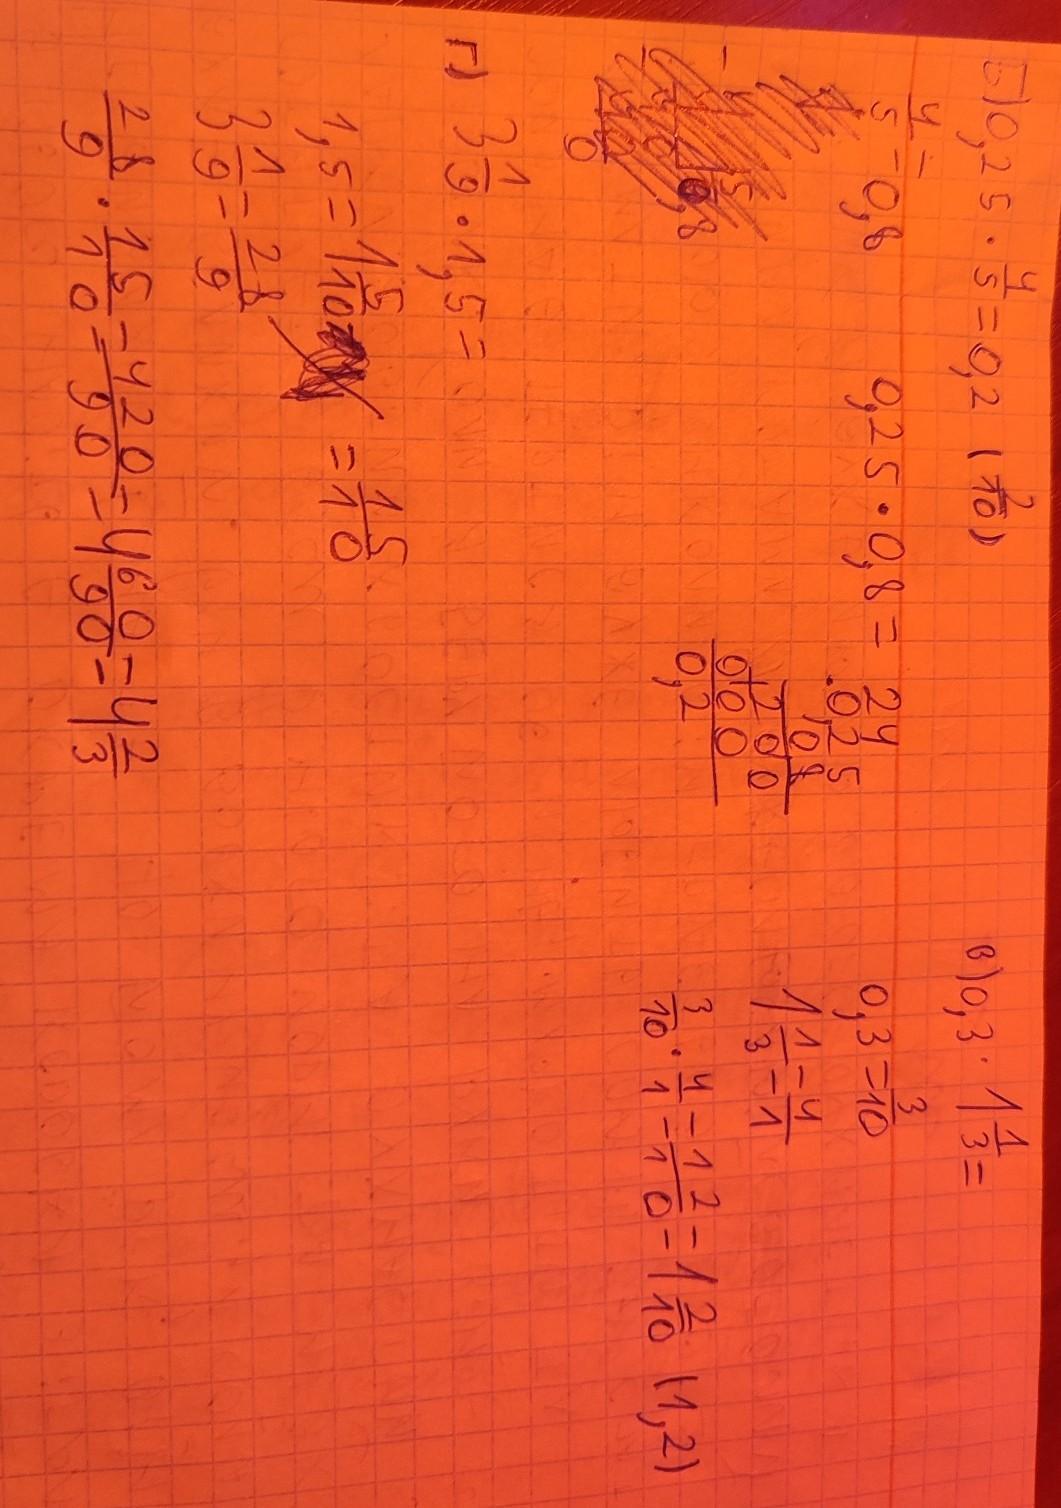 Б) 0,25 · 4/5 = 0,2 (2/10)
4/5 = 0,8
0,25 · 0,8 =
24
0,25
· 0,8
200
+ 000
0,2
в) 0,3 · 1 1/3 =
0,3 = 3/10
1 1/3 = 4/1
3/10 · 4/1 = 12/10 = 1 2/10 (1,2)
г) 3 1/9 · 1,5 =
1,5 = 1 5/10 = 15/10
3 1/9 = 28/9
28/9 · 15/10 = 420/90 = 4 60/90 = 4 2/3